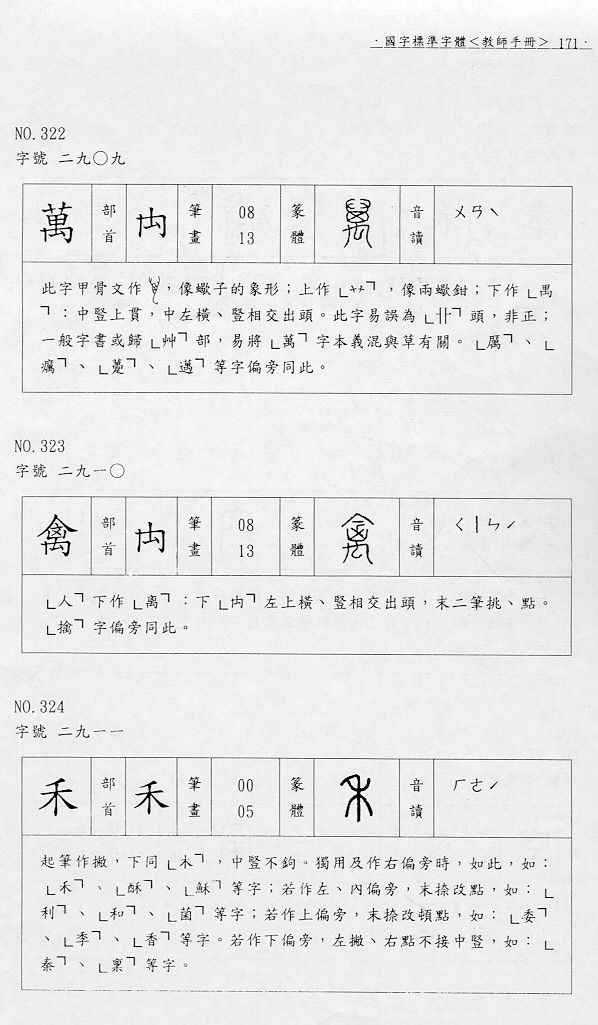 ·國字標準字體<教師手冊> 171·
NO.322
字號 二九〇九
萬 部首 禸 筆畫 08 13 篆體 音讀 ㄨㄢˋ
此字甲骨文作 ,像蠍子的象形;上作「艹」,像兩蠍鉗;下作「禺
」:中豎上貫,中左橫、豎相交出頭。此字易誤為「卝」頭,非正;
一般字書或歸「艸」部,易將「萬」字本義混與草有關。「厲」、「
癘」、「躉」、「邁」等字偏旁同此。
NO.323
字號 二九一〇
禽 部首 禸 筆畫 08 13 篆體 音讀 ㄑㄧㄣˊ
「人」下作「离」:下「禸」左上橫、豎相交出頭,末二筆挑、點。
「擒」字偏旁同此。
NO.324
字號 二九一一
禾 部首 禾 筆畫 00 05 篆體 音讀 ㄏㄜˊ
起筆作撇,下同「木」,中豎不鉤。獨用及作右偏旁時,如此,如:
「禾」、「酥」、「穌」等字;若作左、內偏旁,末捺改點,如:「
利」、「和」、「菌」等字;若作上偏旁,末捺改頓點,如:「委」
、「季」、「香」等字。若作下偏旁,左撇、右點不接中豎,如:「
秦」、「稟」等字。